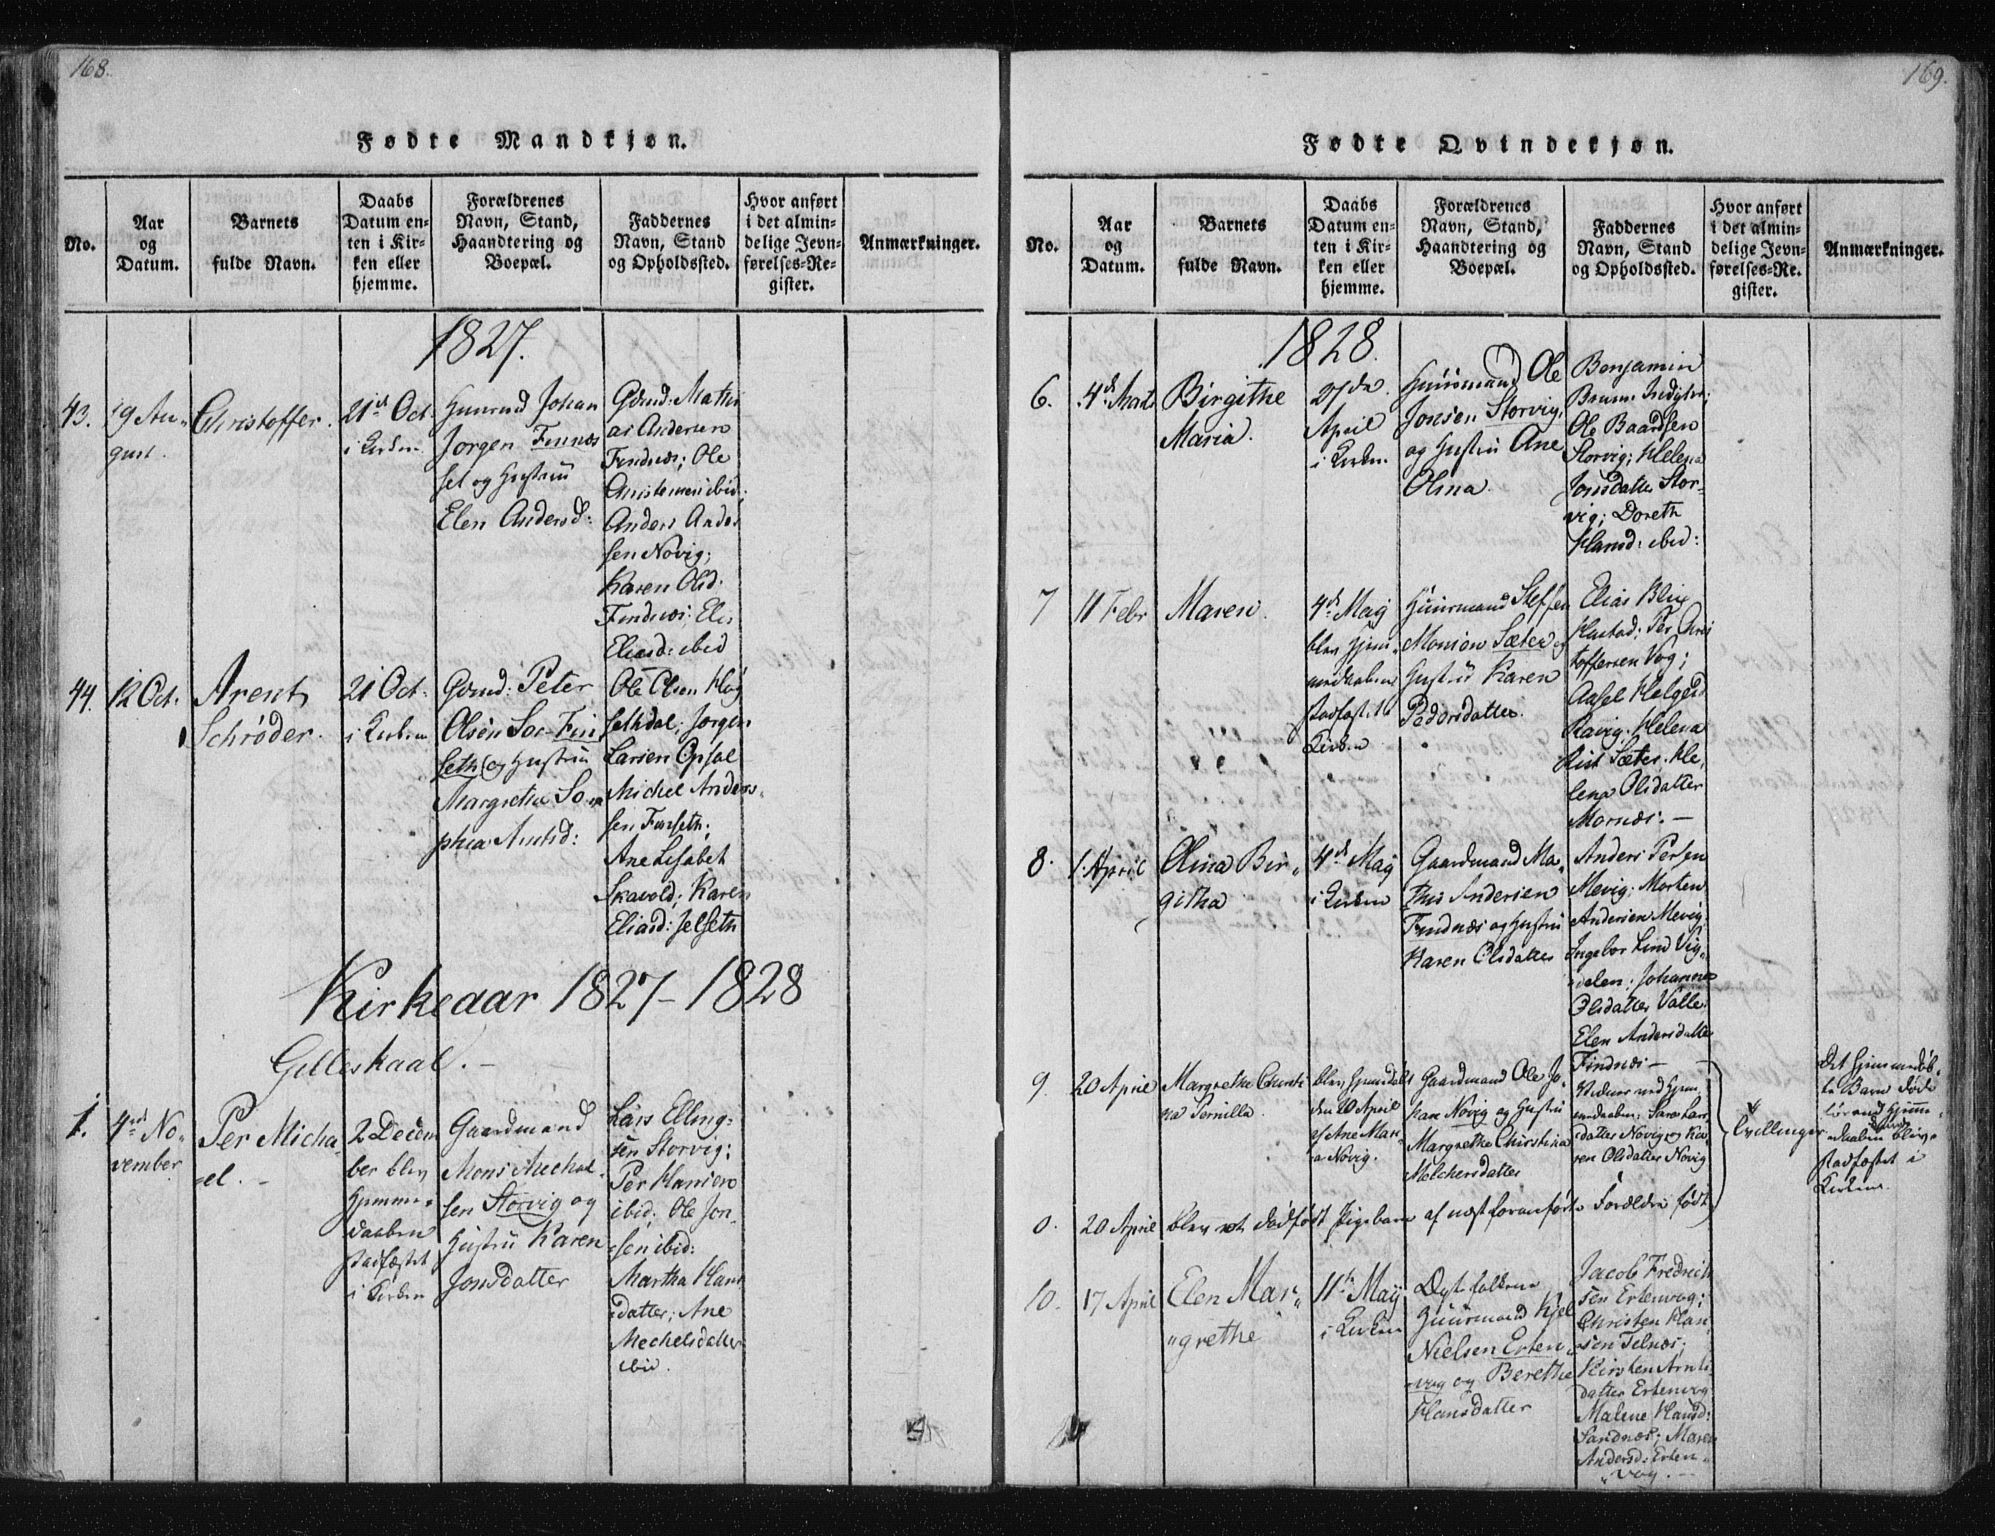 168.
Fødte Mandkjøn.
No.
Aar
og
Datum.
Barnets
fulde Navn.
Daabs
Datum en-
ten i Kir-
ken eller
hjemme.
Forældrenes
Navn, Stand,
Haandtering og
Boepæl.
Faddernes
Navn, Stand
og Opholdssted.
Hvor anført
i det almin-
delige Jevn-
førelses-Re-
gister.
Anmærkninger.
1827.
43.
19 Au-
gust.
Christoffer.
21de Oct.
i Kirken
Johan
Jorgen Finnæs
og Hustru
Elen Andersd:
Gdmd: Mathi
as Andersen
Findnæs; Ole
Christensen ibid;
Anders Ander
sen Novig;
Karen Olsd:
Findnæs; Elis
Eliasd: ibid
44.
12 Oct.
Arent
Schrøder.
21 Oct.
i Kirken
Gdmd: Peter
Olsen Fin
seth og Hustru
Margretha So
phia Arntsd:
Ole Olsen Høg
sethdal; Jørgen
Larsen Opsal
Michel Anders-
sen Finseth;
Ane Lisabet
Skavold; Karen
Eliasd: Selseth
Kirkeaar 1827-1828
Gilleskaal.-
1.
4de No-
vember
Per Micha-
el.-
2 Decem
ber blev
Hjemme-
daaben
stadfæstet
i Kirken
Gaardmand
Mons Michel
sen Storvig og
Hustru Karen
Jonsdatter
Lars Elling-
sen Storvig;
Per Hansen
ibid; Ole Jon-
sen ibid:
Martha Hans
datter; Ane
Mechelsdatter
ibid.
169.
Fødte Qvindekjøn.
No.
Aar
og
Datum.
Barnets
fulde Navn.
Daabs
Datum en-
ten i Kir-
ken eller
hjemme.
Forældrenes
Navn, Stand,
Haandtering og
Boepæl.
Faddernes
Navn, Stand
og Opholdssted.
Hvor anført
i det almin-
delige Jevn-
førelses-Re-
gister.
Anmærkninger.
1828.
6.
4de Marts
Birgithe
Maria.
27de
April
i Kirken
Huusmand Ole
Jonsen Storvig,
og Hustru Ane
Olina.
Benjamin
Ole Baardsen
Storvig; Helena
Jonsdatter Stor-
vig; Doreth
Hansd: ibid:
7
11 Febr
Maren.
4de Maij
blev Hjem-
medaaben
stadfæst. i
Kirken
Huusmand Steffen
Monsen Sæter og
Hustru Karen
Pedersdatter.
Elias Blix
Hastad; Per Chris
toffersen Vog;
Axsel Helgesd
Ravig; Helena
Sæter. He
lena Olsdatter
Mornæs.-
8.
1. April
Olina Bir-
githa
4de Maij
i Kirken
Gaardmand Ma-
this Andersen
Findnæs og Hustru
Karen Olsdatter
Anders Persen
Mevig; Morten
Andersen Mevig
Ingebor Lind Vig-
delen; Johanne
Olsdatter Valle
Elen Andersdatter
Findnæs-
9.
20 April
Margrethe Christi
na Pernilla.
blev hjemdøbt
den 20 April
af Ane Mari-
a Novig.
Gaardmand Ole Jo-
han Novig og Hustru
Margrethe Christina
Melchersdatter
Vidner ved Hjem
medaaben; Sara Lars
datter Novig og Ka-
ren Olsdatter Novig
Tvillinger
Det hjemmedøb-
te Barn døde
førend Hjemme-
daaben blev
stadfæstet i
Kirken.
0.
20 April
blev et dødfødt Pigebarn af næstforanførte Forældre født
10.
17 April
Elen Mar-
grethe
11te Maij
i Kirken
Dygtefolkene
Huusmand Kjel
Nielsen Erten-
vog og Berethe
Hansdatter
Jacob Fredrich
sen Ertenvog;
Christen Han-
sen Telnæs;
Kirsten Arnts
datter Ertenvog
Malene Hansd:
Sandnæs; Maren
Andersd: Erten-
vog.-